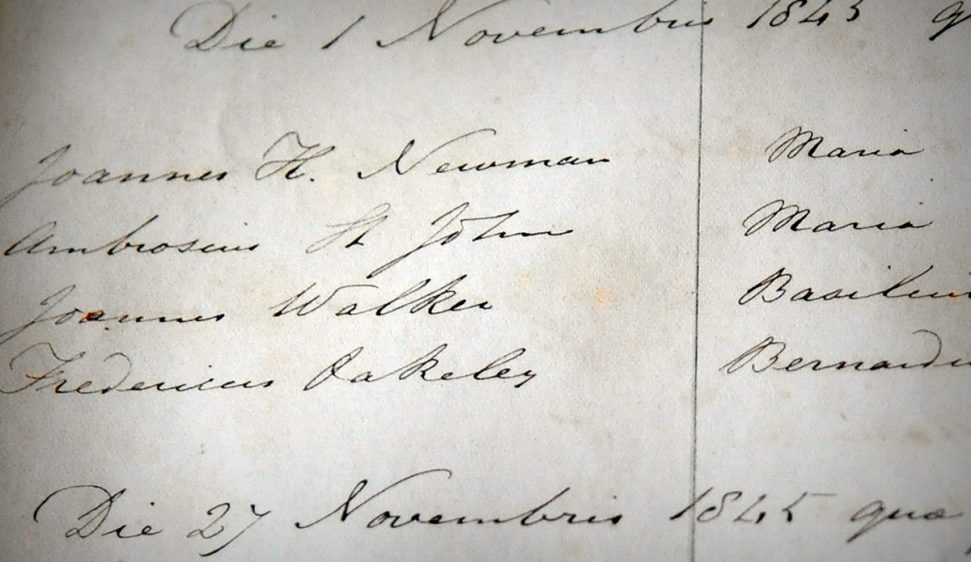 Die 1 Novembris 1845
Joannes H. Newman Maria
Ambrosius St John Maria
Joannes Walker
Fredericus Oakeley
Die 27 Novembris 1845 quæ